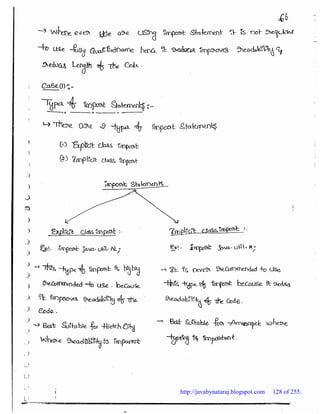 66
→ Whenever we are using import statement it is not required
to use fully Qualified name hence it reduces improves readability &
reduces Length of the Code.
Case(1):-
Types of import Statements:-
→ There are 2 types of import Statements
(1) Explicit class import
(2) Implicit class import
import Statements
Explicit class import :
Ex: import java.util.AL;
→ This type of import is highly
recommended to use. because
it improves readability of the
Code.
→ Best Suitable for Hitech City
where readability is important
Implicit class import :
Ex: import java.util.*;
→ It is never recommended to use
this type of import because it reduces
readability of the code.
→ Best Suitable for Ameerpet where
typing is important.
http://javabynataraj.blogspot.com 128 of 255.